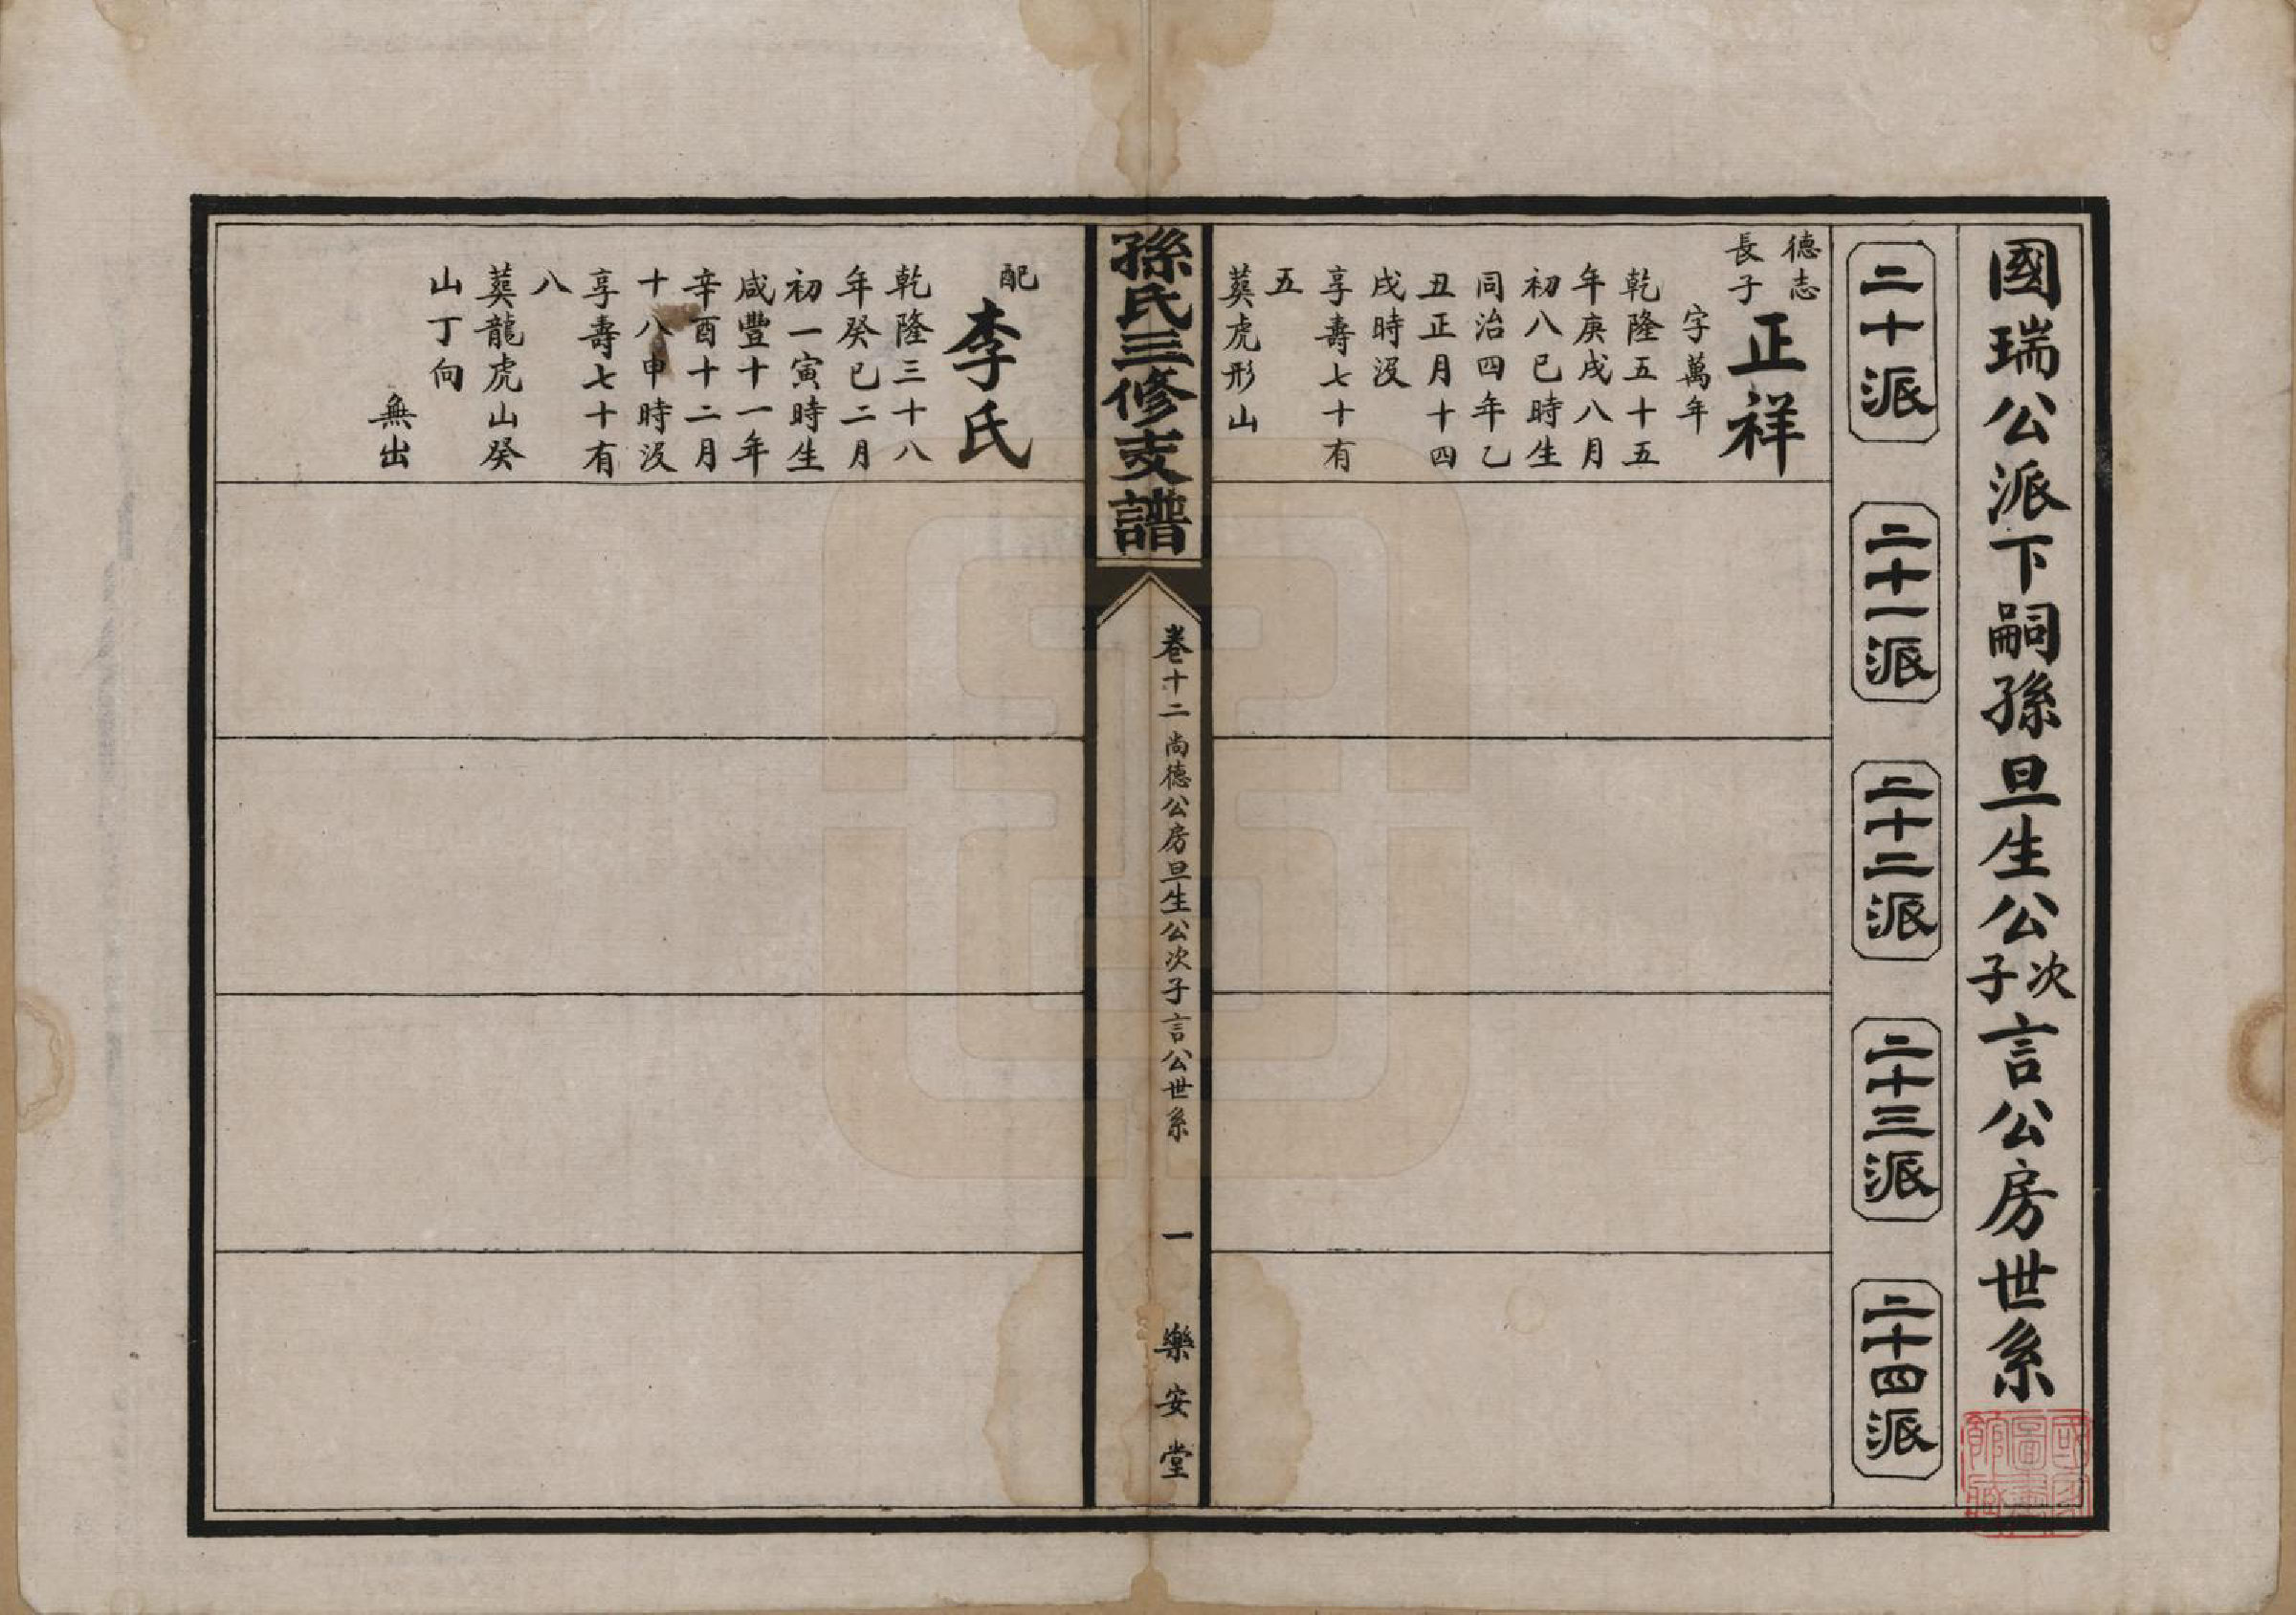 國瑞公派下嗣孫旦生公次子言公房世系
二十派
二十一派
二十二派
二十三派
二十四派
德志
長子
正祥
字萬年
乾隆五十五
年庚戌八月
初八巳時生
同治四年乙
丑正月十四
戌時没
享壽七十有
五
葵虎形山
孫氏三修支譜
卷十二
尚德公房旦生公次子言公世系
一
樂安堂
配
李氏
乾隆三十八
年癸巳二月
初一寅時生
咸豐十一年
辛酉十二月
十八申時没
享壽七十有
八
葵龍虎山癸
山丁向
無出
國家圖書館藏